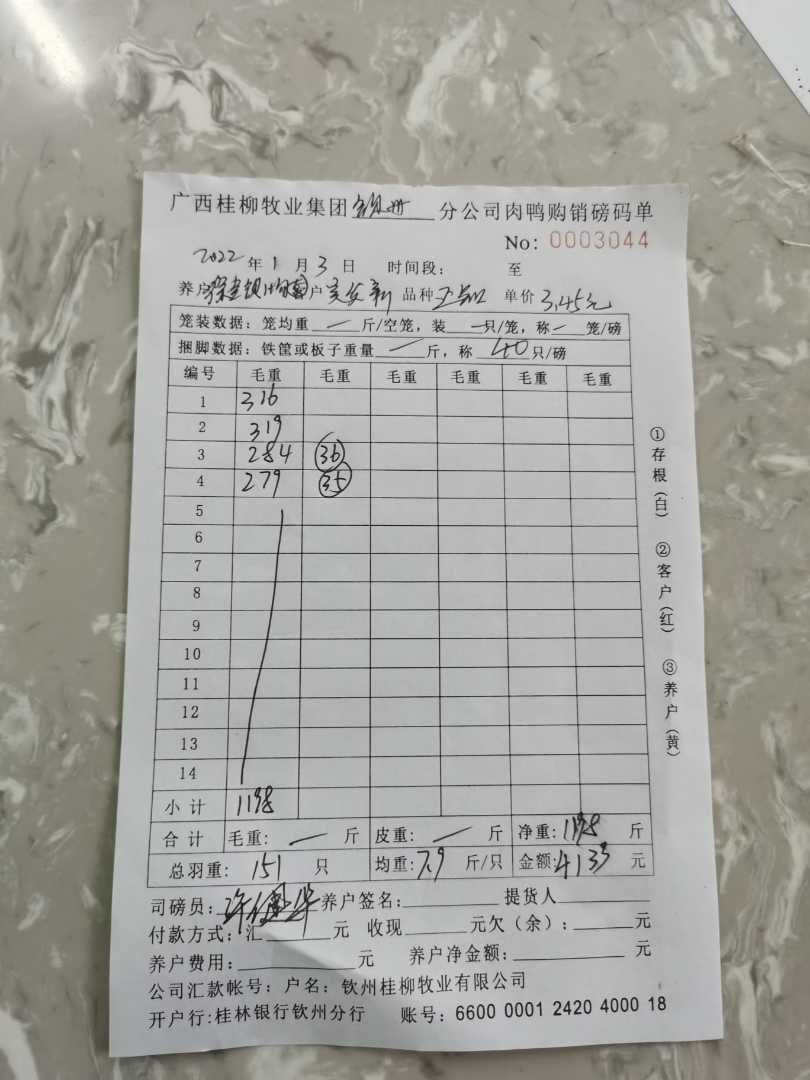 广西桂柳牧业集团钦州分公司肉鸭购销磅码单
No: 0003044
2022年1月3日 时间段: 至
养户 户 品种 单价3.45元
笼装数据: 笼均重 — 斤/空笼, 装 — 只/笼, 称 — 笼/磅
捆脚数据: 铁筐或板子重量 — 斤, 称 40 只/磅
编号 毛重 毛重 毛重 毛重 毛重 毛重
1 316
2 319
3 284 36
4 279 35
5
6
7
8
9
10
11
12
13
14
小计 1198
合计 毛重: — 斤 皮重: — 斤 净重: 1198 斤
总羽重: 151 只 均重: 7.9 斤/只 金额: 4133 元
司磅员: 养户签名: 提货人
付款方式: 汇 元 收现 元欠(余): 元
养户费用: 元 养户净金额: 元
公司汇款帐号: 户名: 钦州桂柳牧业有限公司
开户行:桂林银行钦州分行 账号: 6600 0001 2420 4000 18
①存根(白) ②客户(红) ③养户(黄)